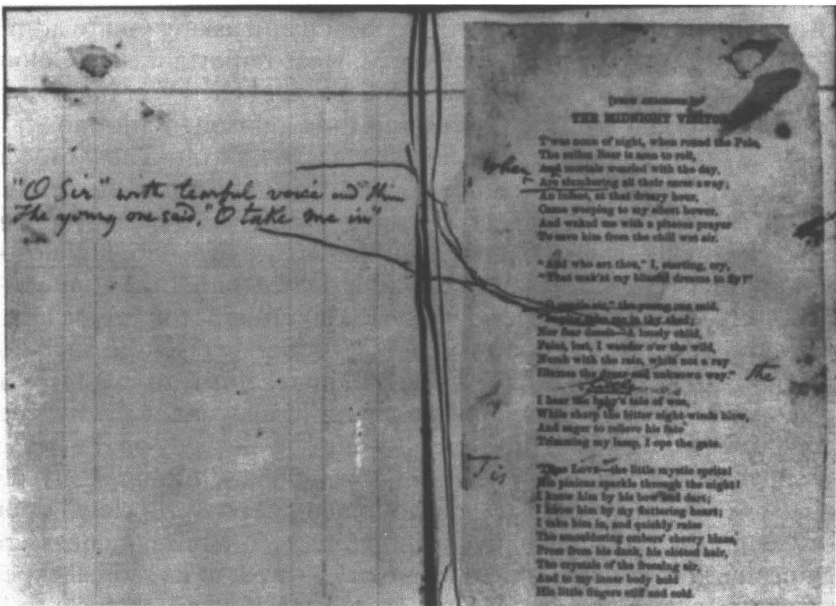 "O Sir" with tearful voice and thin
The young one said, "O take me in"
THE MIDNIGHT VISITOR
'Twas noon of night, when round the Pole,
The sullen Bear is seen to roll,
When
And mortals wearied with the day,
Are slumbering all their cares away;
An infant, at that dreary hour,
Came weeping to my silent bower,
And waked me with a piteous prayer
To save him from the chill wet air.
"And who art thou," I, starting, cry,
"That mak'st my blissful dreams to fly?"
gentle sir," the young one said,
me in thy shed;
Nor fear deceit—A lonely child,
Faint, lost, I wander o'er the wild,
Numb with the rain, while not a ray
Illumes the drear and unknown way." the
I hear the baby's tale of woe,
While sharp the bitter night-winds blow,
And eager to relieve his fate
Trimming my lamp, I ope the gate.
'Tis
'Twas Love—the little mystic sprite!
His pinions sparkle through the night!
I knew him by his bow and dart;
I knew him by my fluttering heart;
I take him in, and quickly raise
The smouldering embers' cheery blaze,
Press from his dank, his chilled hair,
The crystals of the freezing air,
And to my inner body hold
His little fingers stiff and cold.